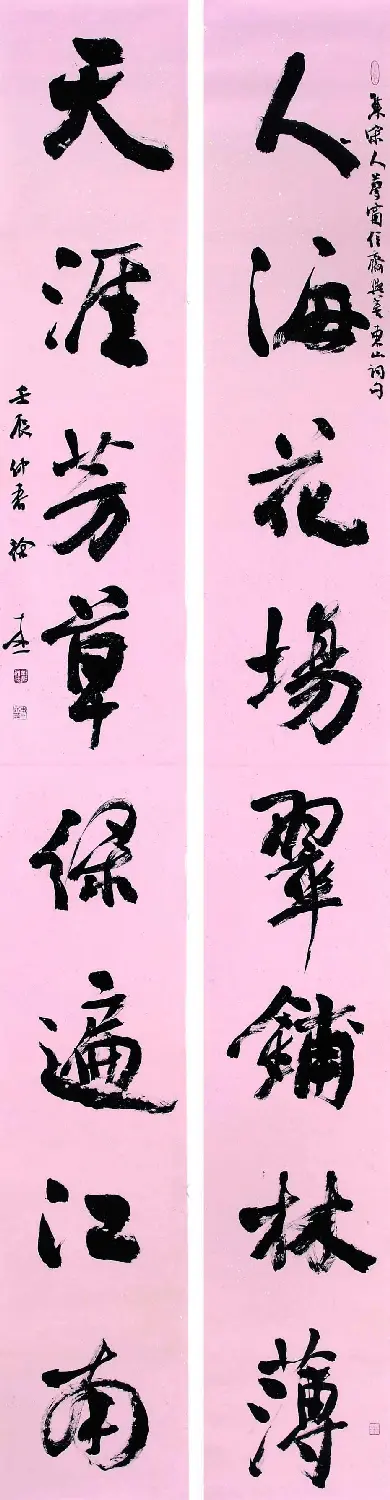 集宋人夢窗 齋與 山詞句
人海花場翠鋪林薄
天涯芳草綠遍江南
壬辰仲春 徐